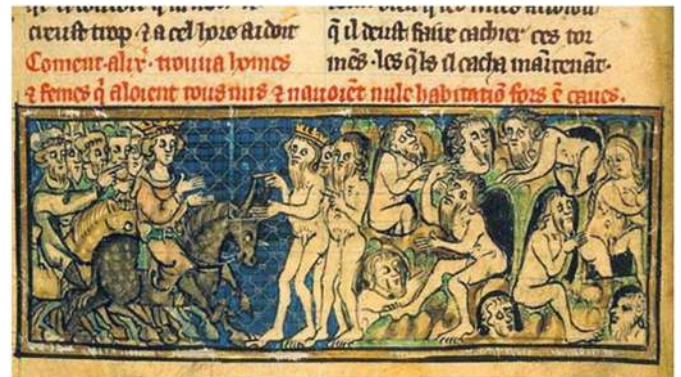 creust trop ⁊ a cel hore ardoit
Coment alix᾿. trouua homes
q̓ il deust faire cachier ces tor
mēs. les q̄ls il cacha maītenāt.
⁊ femes q̄ aloient tous nus ⁊ nauoiēt nule habitatiō fors ē caues.